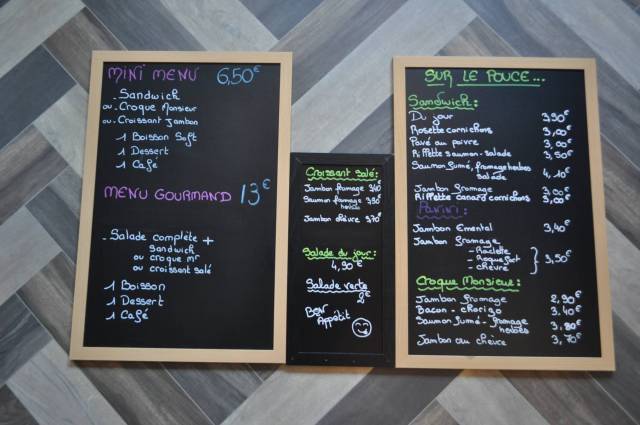 MINI MENU 6,50€
- Sandwich
ou - Croque Monsieur
ou - Croissant Jambon
1 Boisson Soft
1 Dessert
1 Café
MENU GOURMAND 13€
- Salade complète +
Sandwich
ou croque mr
ou croissant salé
1 Boisson
1 Dessert
1 Café
Croissant salé:
Jambon fromage 3,40€
Saumon fromage 3,90€
herbes
Jambon chèvre 3,70€
Salade du jour:
4,90€
Salade verte
2€
Bon
Appétit
SUR LE POUCE...
Sandwich:
Du jour 3,90€
Rosette cornichons 3,00€
Pavé au poivre 3,00€
Rillette saumon-salade 3,50€
Saumon fumé, fromage herbes
salade 4,10€
Jambon fromage 3,00€
Rillette canard cornichons 3,00€
Panini:
Jambon Emental 3,40€
Jambon fromage
- Raclette
- Roquefort
- chèvre
3,50€
Croque Monsieur:
Jambon fromage 2,90€
Bacon - chorizo 3,40€
Saumon fumé - fromage
herbes 3,80€
Jambon ou chèvre 3,70€